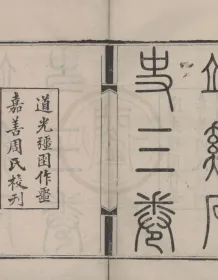 史三卷
道光彊圉作噩
嘉善周氏校刊